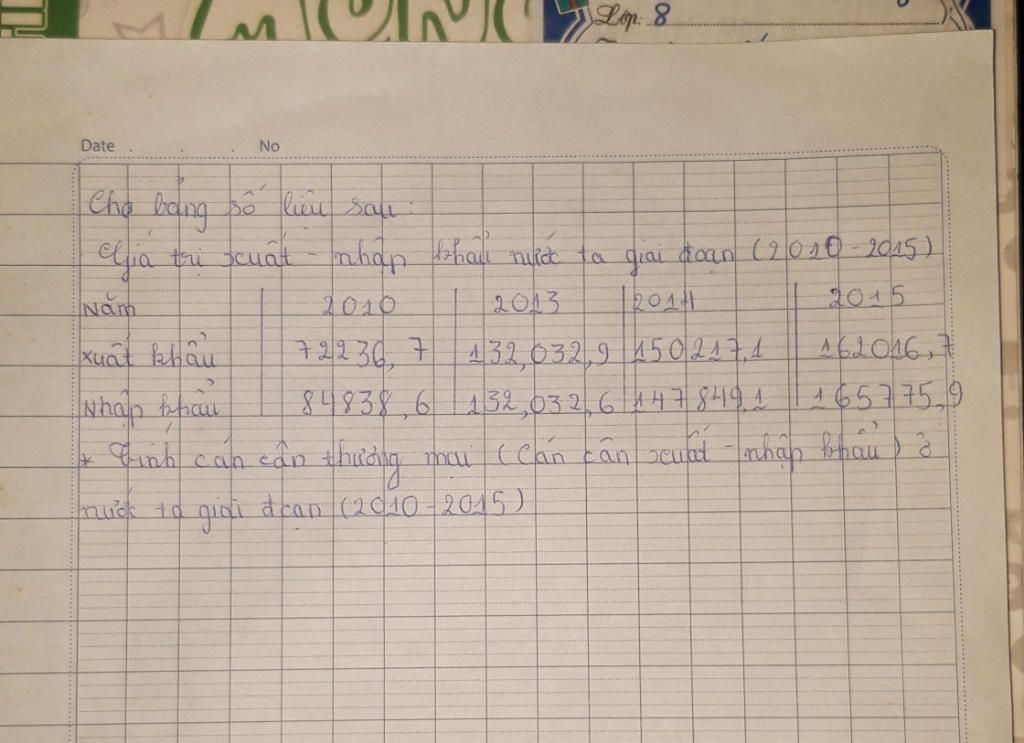 Lớp: 8
Date . . . No
Cho bảng số liệu sau:
Giá trị xuất - nhập khẩu nước ta giai đoạn (2010 - 2015)
Năm 2010 2013 2014 2015
xuất khẩu 72236,7 132,032,9 150217,1 162016,7
Nhập khẩu 84838,6 132,032,6 147849,1 165775,9
* Tính cán cân thương mại (Cán cân xuất - nhập khẩu) ở
nước ta giai đoạn (2010 - 2015)